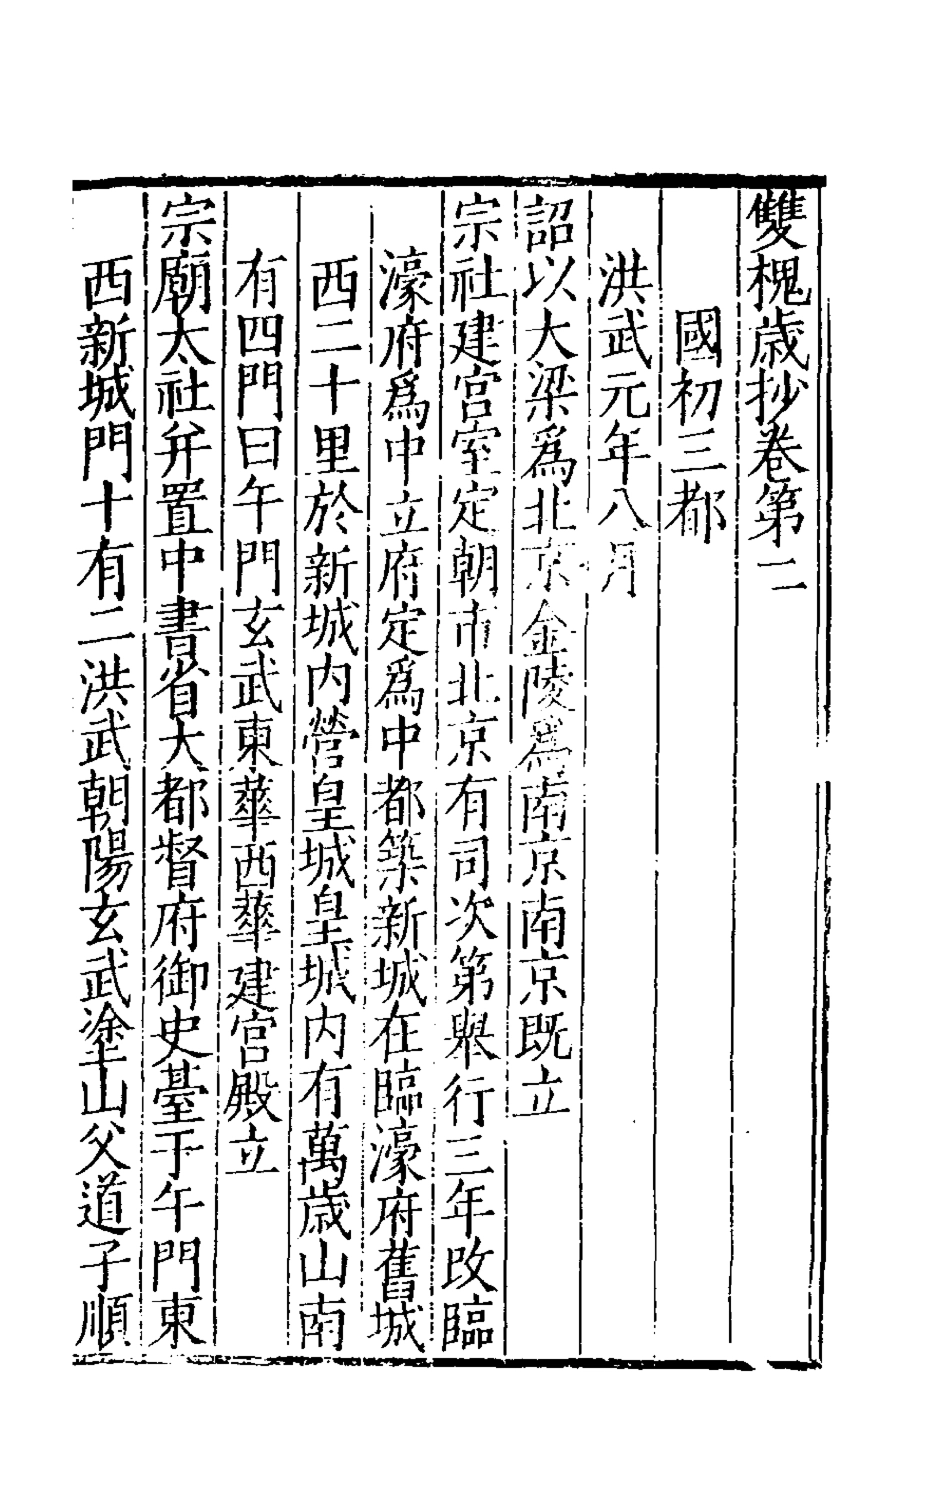 雙槐歲抄卷第二
國初三都
洪武元年八月
詔以大梁爲北京金陵爲南京南京既立
宗社建宮室定朝市北京有司次第舉行三年改臨
濠府爲中立府定爲中都築新城在臨濠府舊城
西二十里於新城內營皇城皇城內有萬歲山南
有四門曰午門玄武東華西華建宮殿立
宗廟太社弁置中書省大都督府御史臺于午門東
西新城門十有二洪武朝陽玄武塗山父道子順